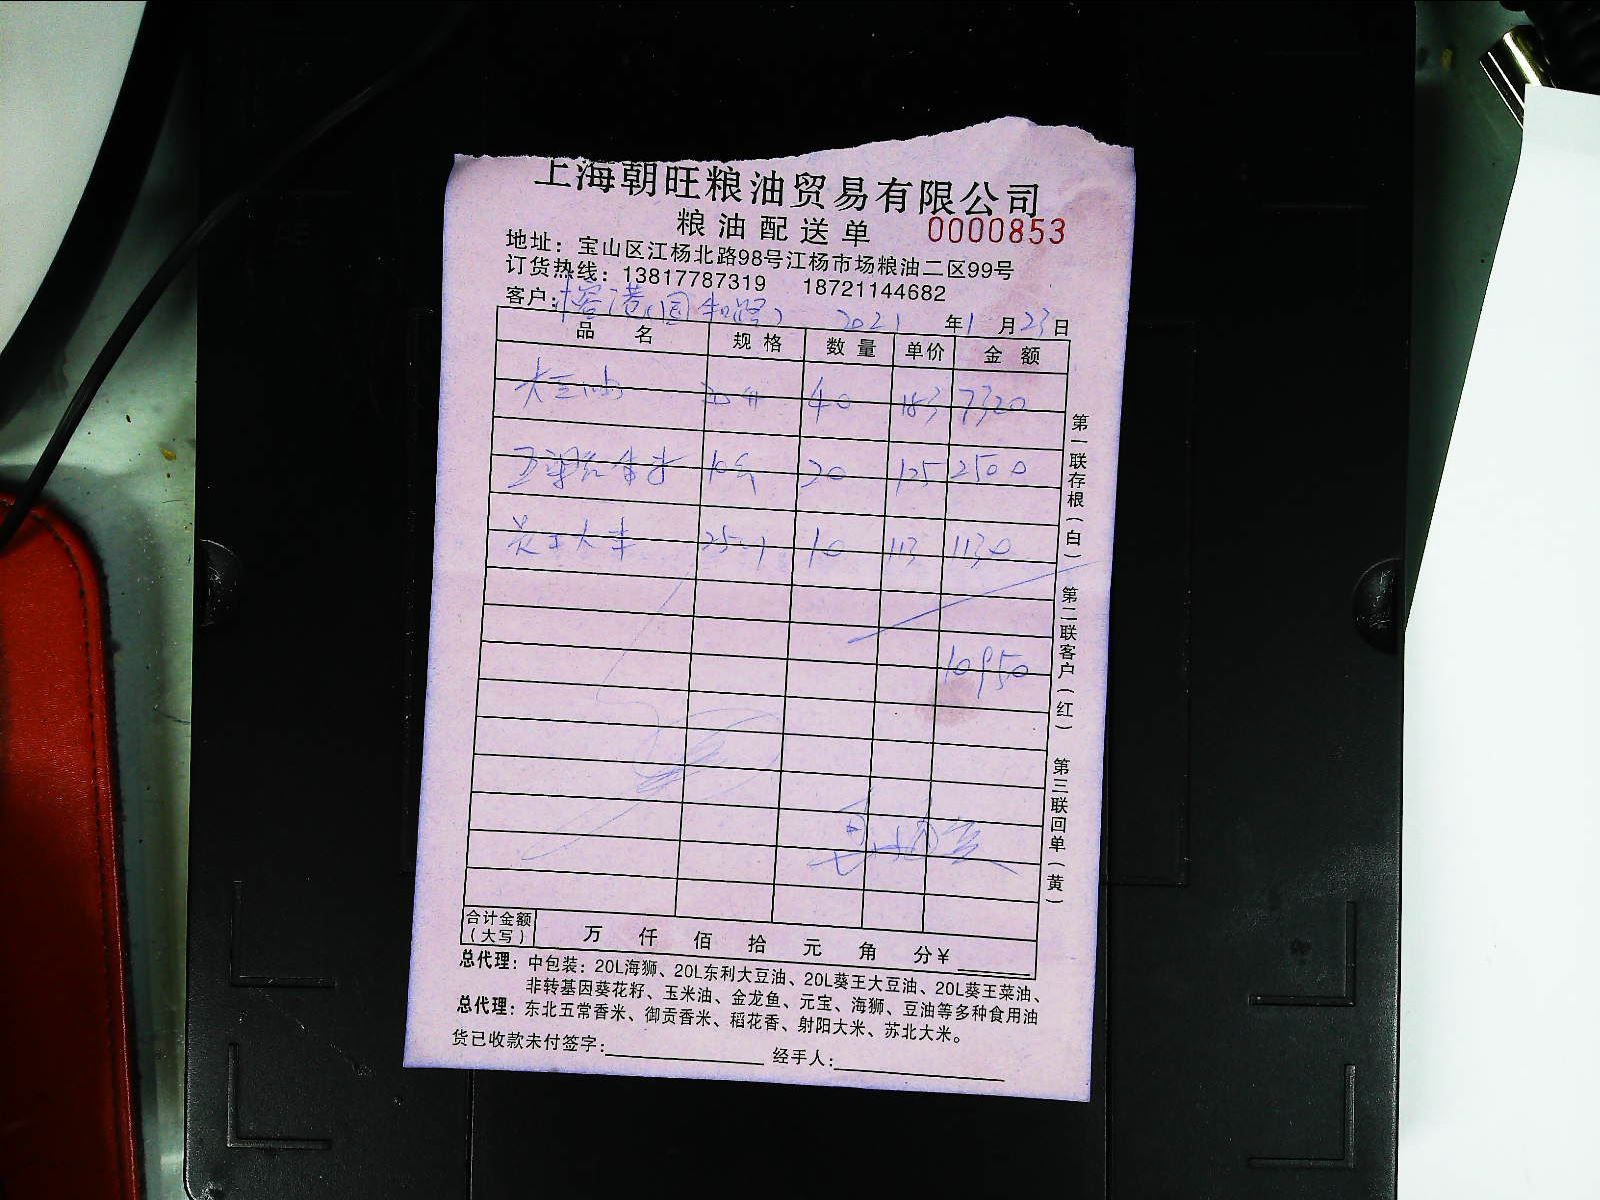 上海朝旺粮油贸易有限公司
粮油配送单 0000853
地址：宝山区江杨北路98号江杨市场粮油二区99号
订货热线：13817787319 18721144682
客户： 2021年1月23日
品名 规格 数量 单价 金额
大豆油 40 183 7320
20 125 2500
大米 10 113 1130
10950
合计金额（大写） 万 仟 佰 拾 元 角 分¥
总代理：中包装：20L海狮、20L东利大豆油、20L葵王大豆油、20L葵王菜油、
非转基因葵花籽、玉米油、金龙鱼、元宝、海狮、豆油等多种食用油
总代理：东北五常香米、御贡香米、稻花香、射阳大米、苏北大米。
货已收款未付签字： 经手人：
第一联存根（白）
第二联客户（红）
第三联回单（黄）